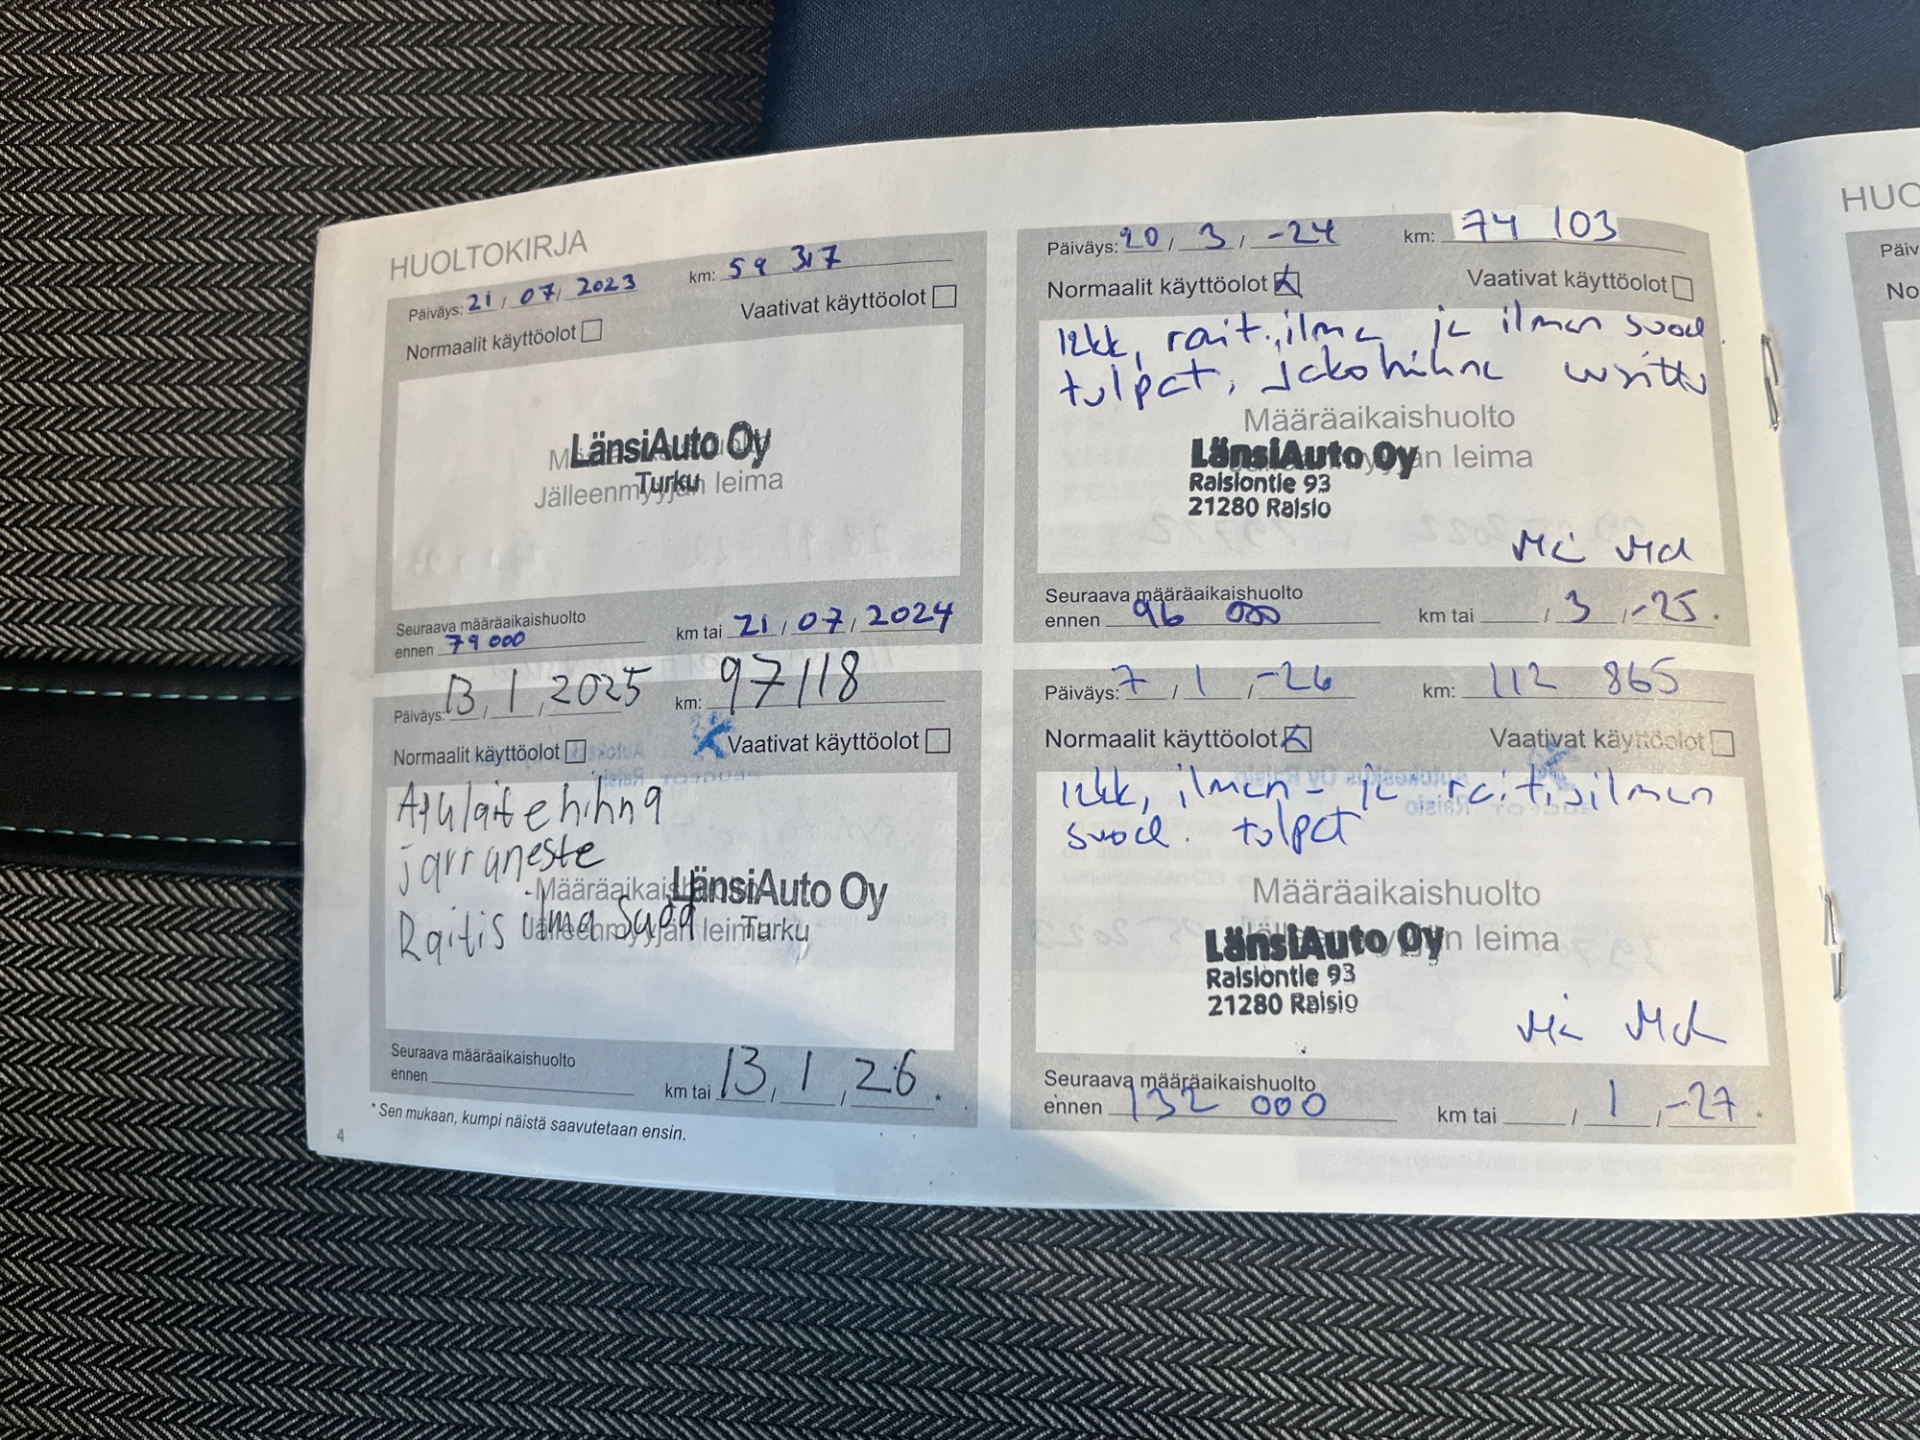 HUOLTOKIRJA
Päiväys: 21 / 07 / 2023 km: 59 317
Normaalit käyttöolot Vaativat käyttöolot
Määräaikaishuolto
LänsiAuto Oy
Jälleenmyyjän leima
Turku
Seuraava määräaikaishuolto
ennen 79 000 km tai 21 / 07 / 2024
Päiväys: 13 / 1 / 2025 km: 97118
Normaalit käyttöolot Vaativat käyttöolot
Apulaitehihna
jarruneste
Määräaikaishuolto
LänsiAuto Oy
Raitis ilma suod
Jälleenmyyjän leima
Turku
Seuraava määräaikaishuolto
ennen km tai 13 / 1 / 26 *
* Sen mukaan, kumpi näistä saavutetaan ensin.
4
Päiväys: 20 / 3 / -24 km: 74 103
Normaalit käyttöolot Vaativat käyttöolot
12kk, rait.ilma ja ilman suod.
tulpat, jakohihna
Määräaikaishuolto
LänsiAuto Oy
Jälleenmyyjän leima
Raisiontie 93
21280 Raisio
Seuraava määräaikaishuolto
ennen 96 000 km tai / 3 / -25 *
Päiväys: 7 / 1 / -26 km: 112 865
Normaalit käyttöolot Vaativat käyttöolot
12kk, ilman- ja raitisilman
suod. tulpat
Määräaikaishuolto
LänsiAuto Oy
Jälleenmyyjän leima
Raisiontie 93
21280 Raisio
Seuraava määräaikaishuolto
ennen 132 000 km tai / 1 / -27 *
HUO
Päiv
No